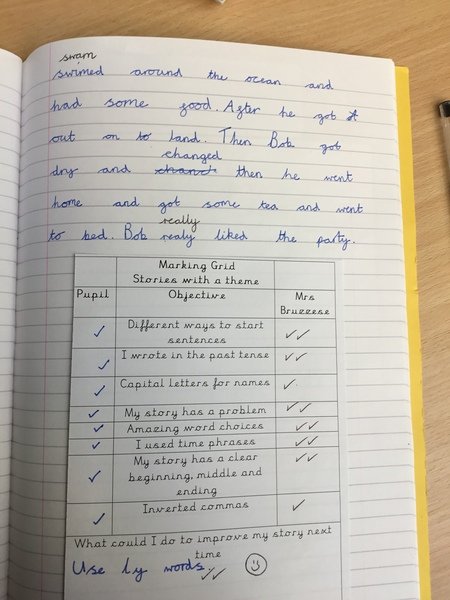 swam
swimed around the ocean and
had some food. After he got
out on to land. Then Bob got
changed
dry and then he went
home and got some tea and went
really
to bed. Bob realy liked the party.
Marking Grid
Stories with a theme
Pupil Objective Mrs Bruzzese
Different ways to start
sentences
I wrote in the past tense
Capital letters for names
My story has a problem
Amazing word choices
I used time phrases
My story has a clear
beginning, middle and
ending
Inverted commas
What could I do to improve my story next
time
Use ly words.